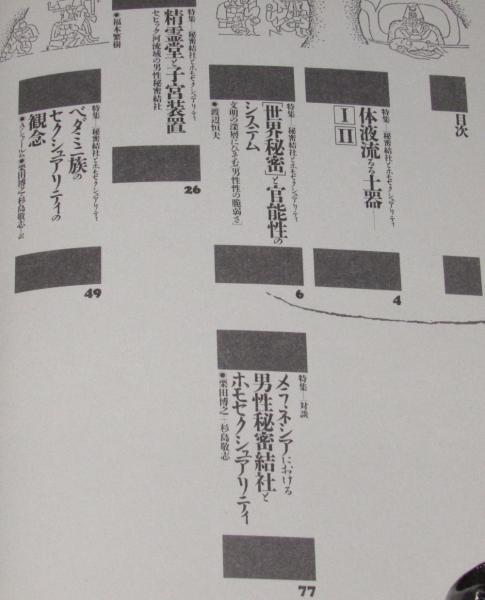 目次
特集—秘密結社とホモセクシュアリティ
体液流るる土器—
I
II
4
特集—秘密結社とホモセクシュアリティ
「世界秘密」と官能性の
システム
文明の深層にひそむ「男性性の脆弱さ」
●渡辺恒夫
6
特集—秘密結社とホモセクシュアリティ
精霊堂と子宮装置
セピック河流域の男性秘密結社
●福本繁樹
26
特集—秘密結社とホモセクシュアリティ
ベダミニ族の
セクシュアリティの
観念
●A・ショールム●栗田博之+杉島敬志=訳
49
特集—対談
メラネシアにおける
男性秘密結社と
ホモセクシュアリティ
●栗田博之+杉島敬志
77